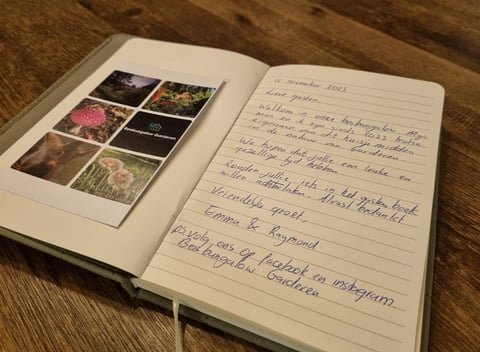 Bosbungalow Garderen
12 november 2023
Lieve gasten,
Welkom in onze bosbungalow. Mijn
man en ik zijn sinds 2023 trotse
eigenaar van dit huisje midden
in de natuur van Garderen.
We hopen dat jullie een leuke en
gezellige tijd hebben.
Zouden jullie iets in het gasten boek
willen achterlaten. Alvast bedankt
Vriendelijke groet,
Emma & Raymond
ps volg ons op facebook en instagram.
Bosbungalow Garderen